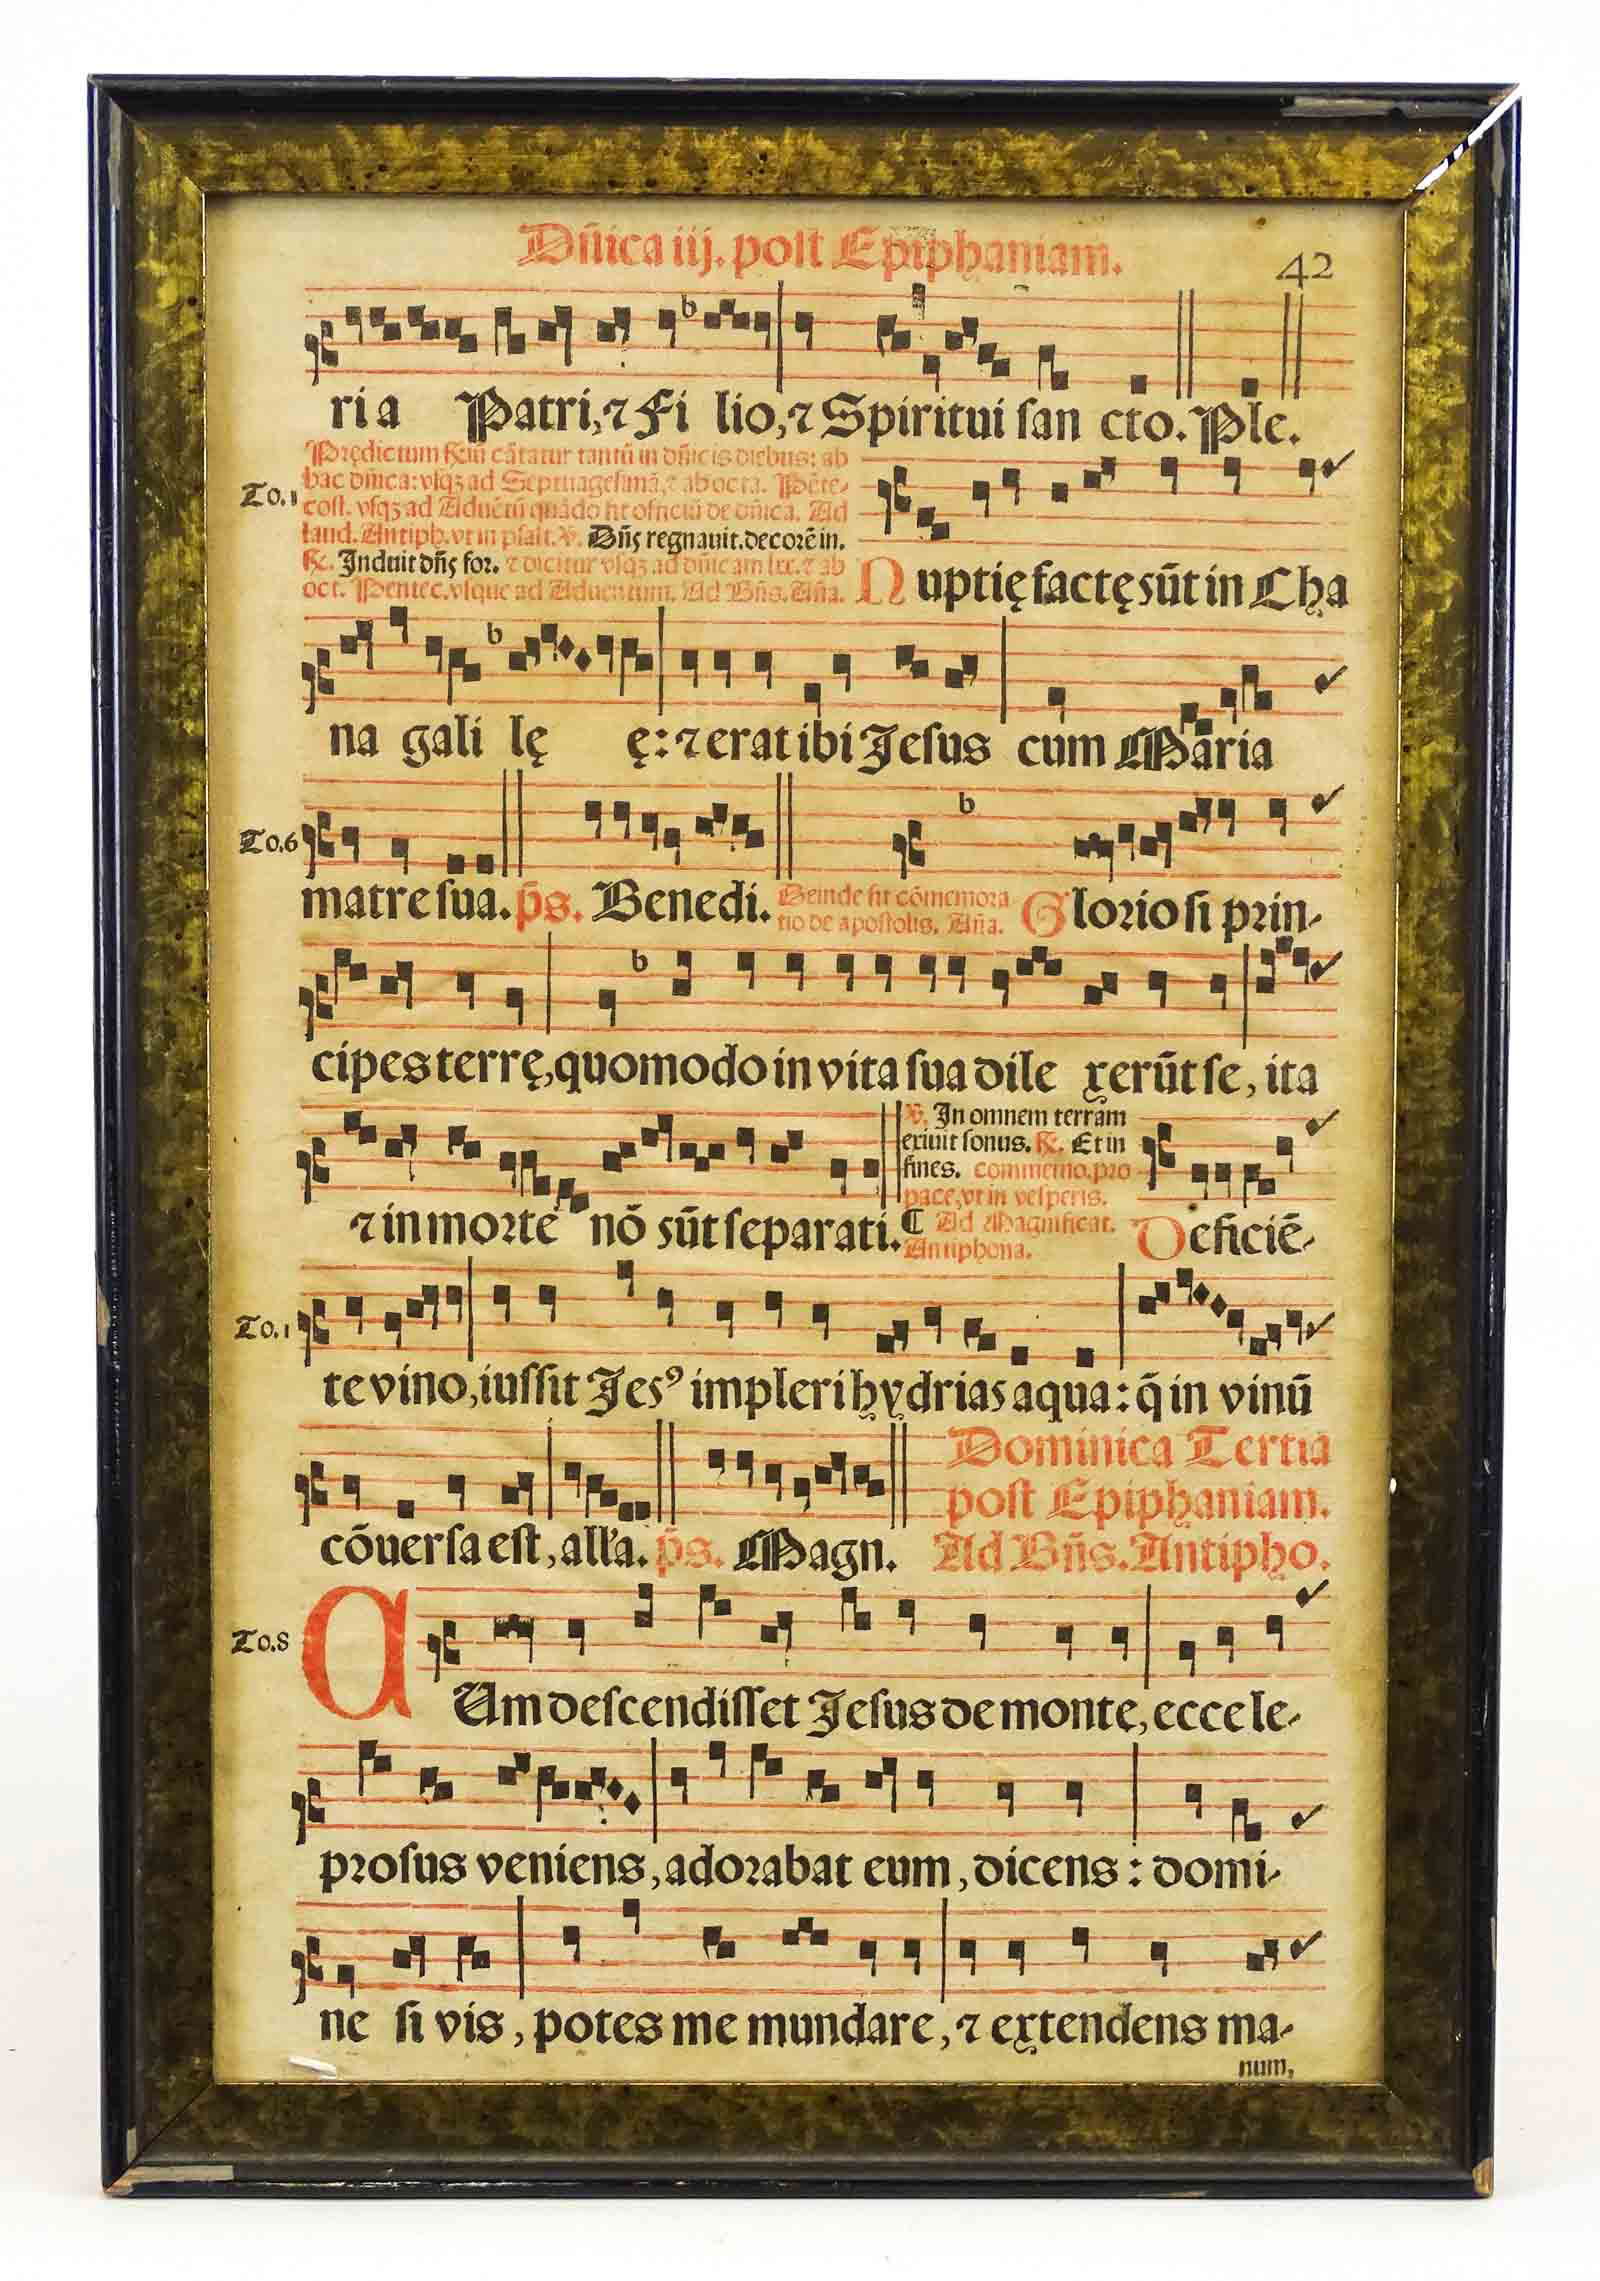 Dñica iij. post Epiphaniam.
42
ria Patri, ⁊ Fi lio, ⁊ Spiritui san cto. Ple.
To.1
Prędictum ℟iũ cãtatur tantũ in dñicis diebus: ab
hac dñica: vsqʒ ad Septuagesimã, ⁊ ab octa. Pẽte-
cost. vsqʒ ad Aduẽtũ quãdo fit officiũ de dñica. Ad
laud. Antiph. vt in psalt. ℣. Dñs regnauit. decorẽ in.
℟. Induit dñs for. ⁊ dicitur vsqʒ ad dñicam lxx. ⁊ ab
oct. Pentec. vsque ad Aduentum. Ad Bñs. Aña.
Nuptię factę sũt in Cha
na gali lę ę: ⁊ erat ibi Jesus cum Maria
To.6
matre sua. p̃s. Benedi.
Deinde fit cõmemora
tio de apostolis. Aña.
Gloriosi prin-
cipes terrę, quomodo in vita sua dile xerũt se, ita
℣. In omnem terram
exiuit sonus. ℟. Et in
fines. commemo. pro
pace, vt in vesperis.
⁊ in morte nõ sũt separati.
¶ Ad Magnificat.
Antiphona.
Deficiẽ-
To.1
te vino, iussit Jesꝰ impleri hydrias aqua: q̃ in vinũ
Dominica Tertia
post Epiphaniam.
cõuersa est, all'a. p̃s. Magn. Ad Bñs. Antipho.
To.8
CUm descendisset Jesus de monte, ecce le-
prosus veniens, adorabat eum, dicens: domi-
ne si vis, potes me mundare, ⁊ extendens ma-
num,